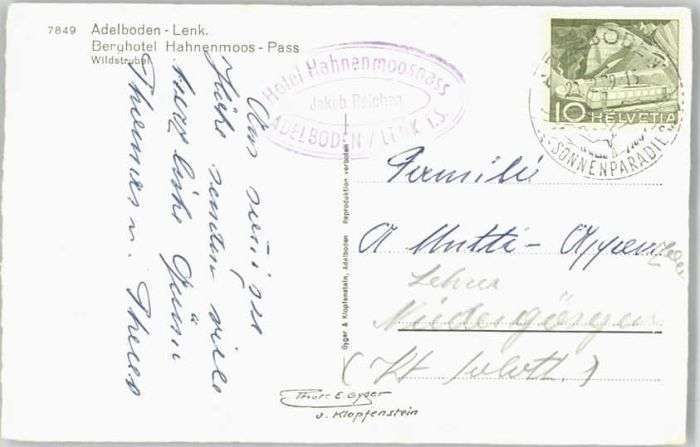 7849 Adelboden - Lenk.
Berghotel Hahnenmoos - Pass
Wildstrubel
Hotel Hahnenmoospass
Jakob Reichen
ADELBODEN / LENK i.S.
10 HELVETIA
ADELBODEN
SONNENPARADIES
Aus sonniger
Höhe senden viele
herzliche Grüsse
Thomas u. Theres
Gyger & Klopfenstein, Adelboden Reproduktion verboten
Familie
A Mutti-
Lehrer
Niedergösgen
(Kt Soloth.)
Phot. E. Gyger
u. Klopfenstein